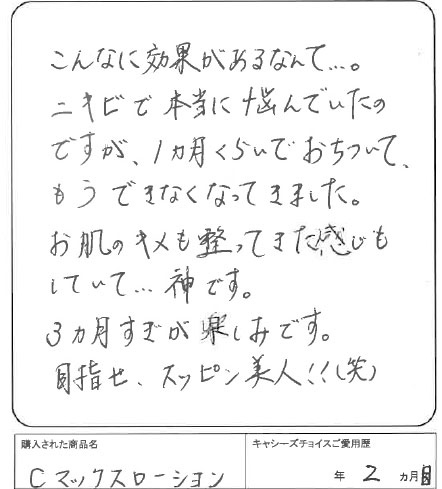 こんなに効果があるなんて…。
ニキビで本当に悩んでいたの
ですが、1カ月くらいでおちついて、
もうできなくなってきました。
お肌のキメも整ってきた感じも
していて…神です。
3カ月すぎが楽しみです。
目指せ、スッピン美人!!(笑)
購入された商品名
キャシーズチョイスご愛用歴
Cマックスローション
年 2 カ月目